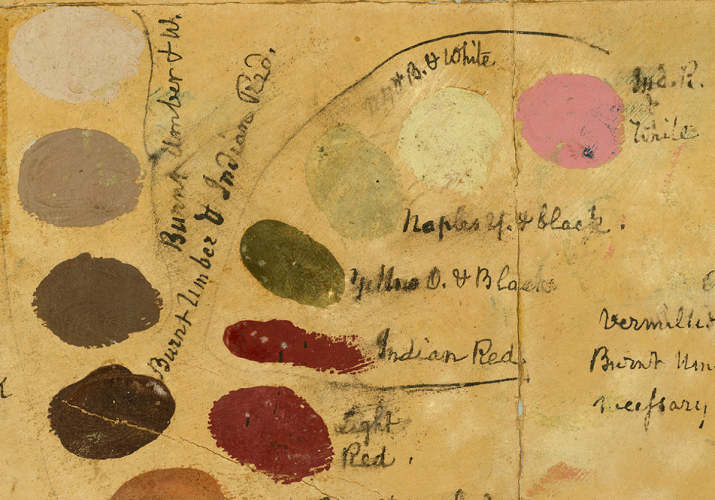 Burnt Umber & W.
Burnt Umber & Indian Red.
& B. & White
Ind. R.
&
White
Naples Y. & black.
Yellow O. & Black
Indian Red.
Light
Red.
Vermillio
Burnt Um
necessary